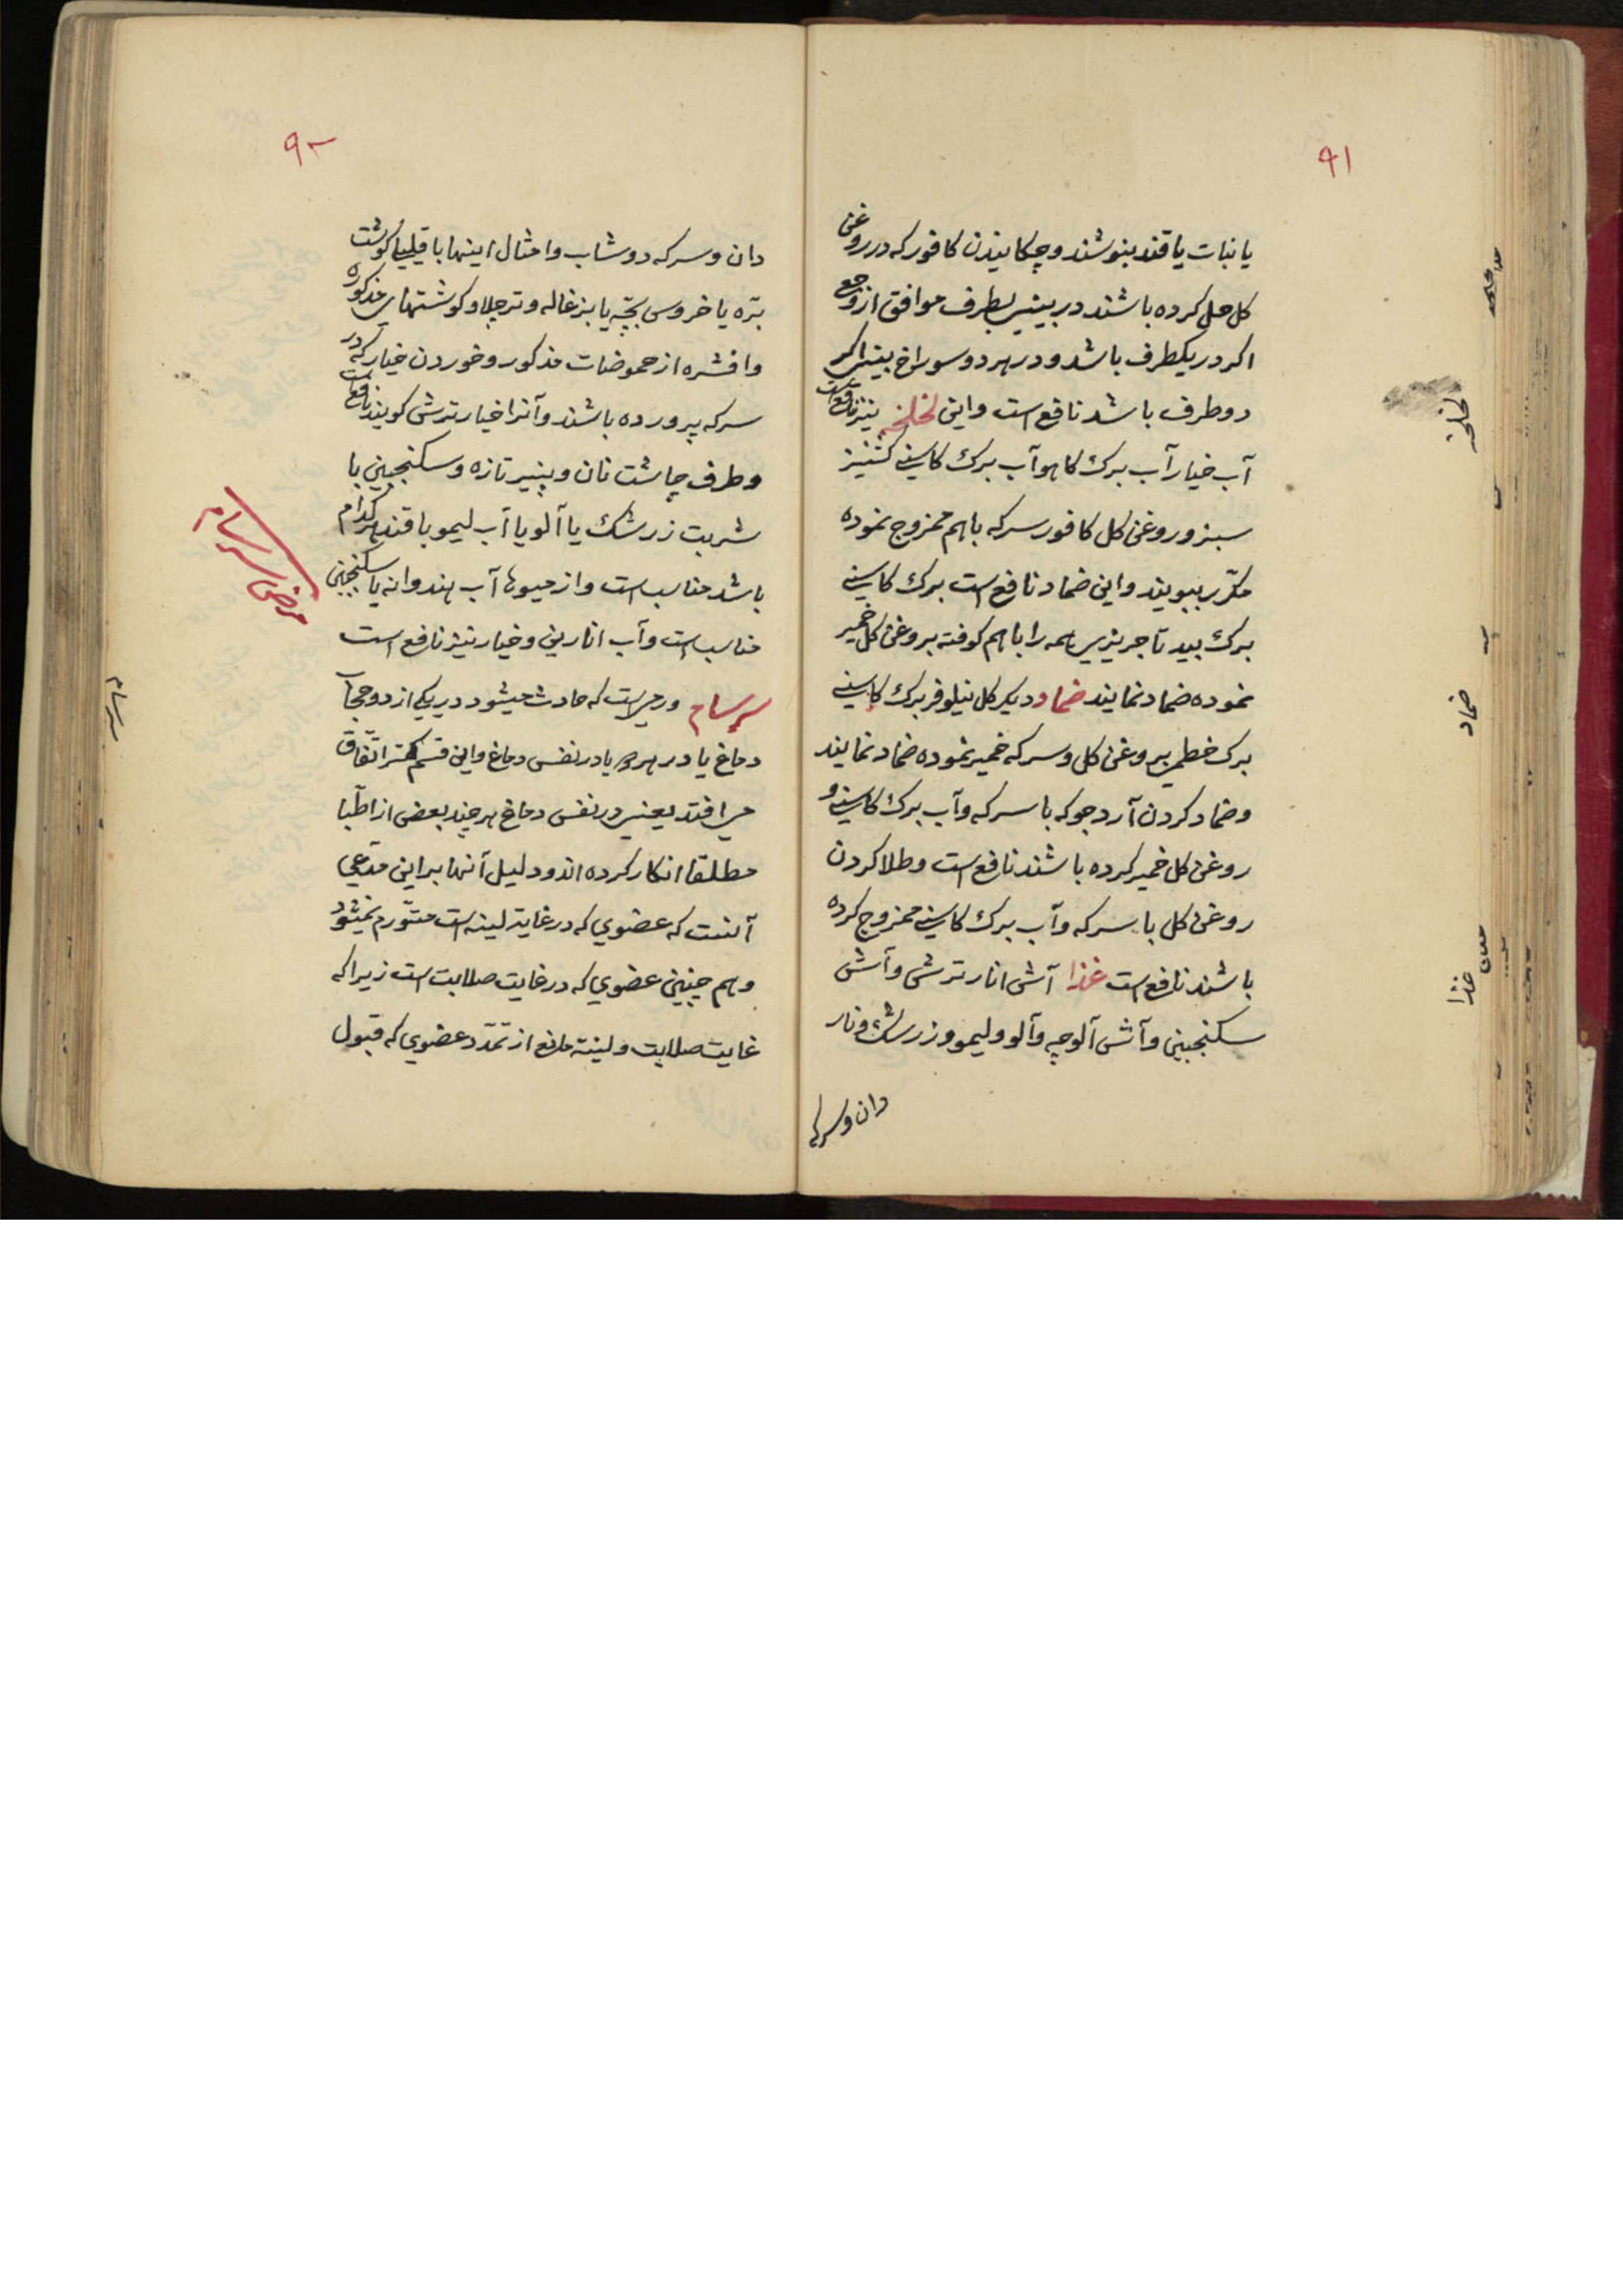 ۹۱
یا نبات یا قند بنوشند و چکانیدن کافور که در روغن
کل حل کرده باشند در بینی بطرف موافق از وجع
اکر در یکطرف باشد و در هر دو سوراخ بینی اکر
دو طرف باشد نافع است و این لخلخه نیز نافع است
آب خیار آب برک کاهو آب برک کاسنی کشنیز
سبز و روغن کل کافور سرکه باهم ممزوج نموده
مکرّر ببویند و این ضماد نافع است برک کاسنی
برک بید تاجریزی همه را باهم کوفته بروغن کل خمیر
نموده ضماد نمایند ضماد دیکر کل نیلوفر برک کاسنی
برک خطمی بروغن کل و سرکه خمیر نموده ضماد نمایند
و ضماد کردن آرد جو که با سرکه و آب برک کاسنی و
روغن کل خمیر کرده باشند نافع است و طلا کردن
روغن کل با سرکه و آب برک کاسنی ممزوج کرده
باشند نافع است غذا آش انار ترش و آش
سکنجبین و آش آلوچه و آلو و لیمو و زرشک و نار
دان و سرکه
لخلخه
ضماد
غذا
۹۲
دان و سرکه دوشاب و امثال اینها با قلیها کوشت
برّه یا خروس بچّه یا بزغاله و ترچلاو کوشتهای مذکوره
و افشره از حموضات مذکور و خوردن خیار که در
سرکه پرورده باشند و آنرا خیار ترشی کویند نافع است
و طرف چاشت نان و پنیر تازه و سکنجبین با
شربت زرشک یا آلو یا آب لیمو با قند هر کدام
باشد مناسب است و از میوها آب هندوانه با سکنجبین
مناسب است و آب انارین و خیار نیز نافع است
سرسام ورمی است که حادث میشود در یکی از دو حجاب
دماغ یا در هر دو یا در نفس دماغ و این قسم کمتر اتّفاق
می افتد یعنی در نفس دماغ هر چند بعضی از اطبّا
مطلقا انکار کرده اند و دلیل آنها بر این مدّعی
آنست که عضوی که در غایت لینه است متورّم نمیشود
و هم چنین عضوی که در غایت صلابت است زیرا که
غایت صلابت و لینة مانع از تمدّد عضوی که قبول
مرض سرسام
سرسام